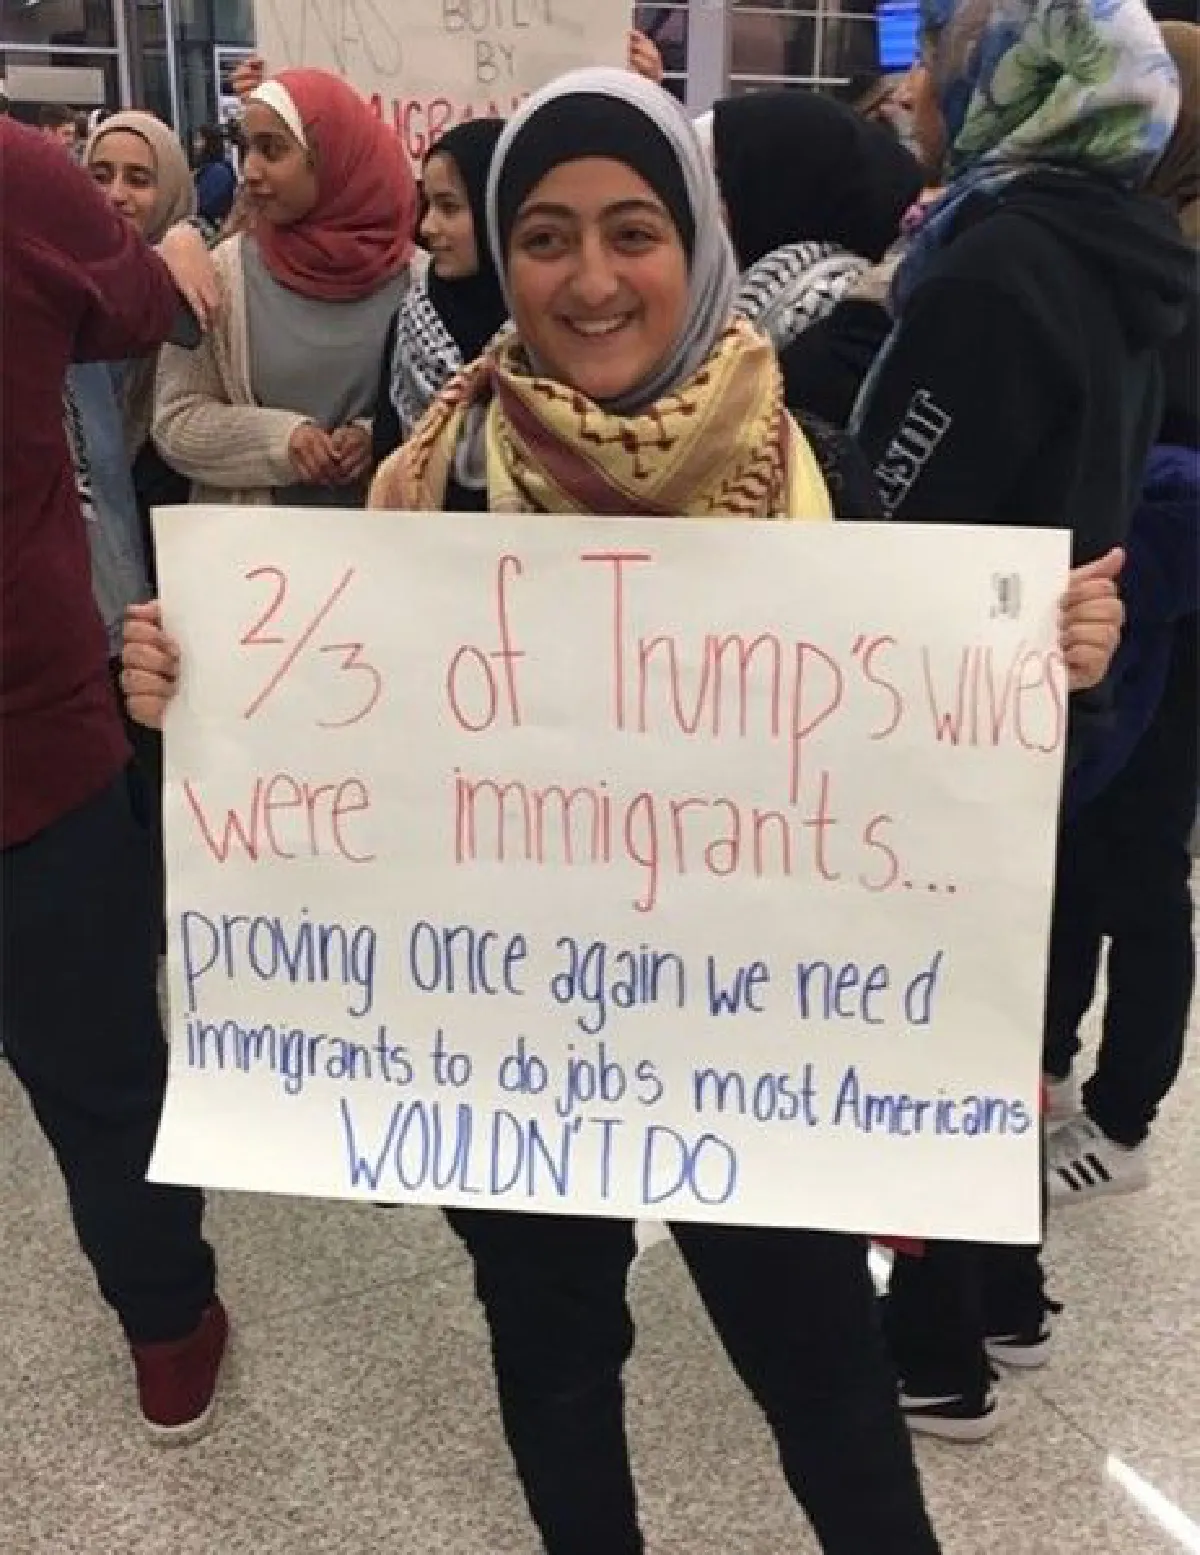 WAS BUILT
BY
2/3 of Trump's wives
were immigrants...
proving once again we need
immigrants to do jobs most Americans
WOULDN'T DO